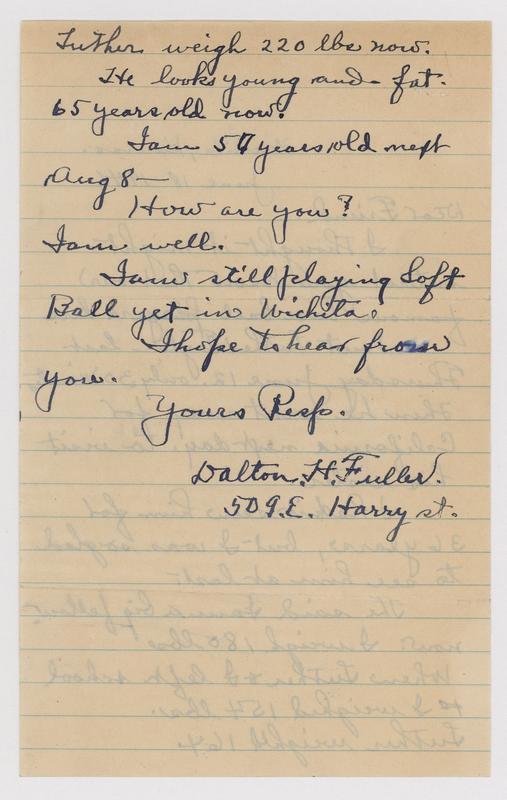 Luther weigh 220 lbs now.
He looks young and fat.
65 years old now.
I am 57 years old next
Aug 8—
How are you?
I am well.
I am still playing Soft
Ball yet in Wichita.
I hope to hear from
you.
Yours Resp.
Dalton. H. Fuller.
509. E. Harry st.